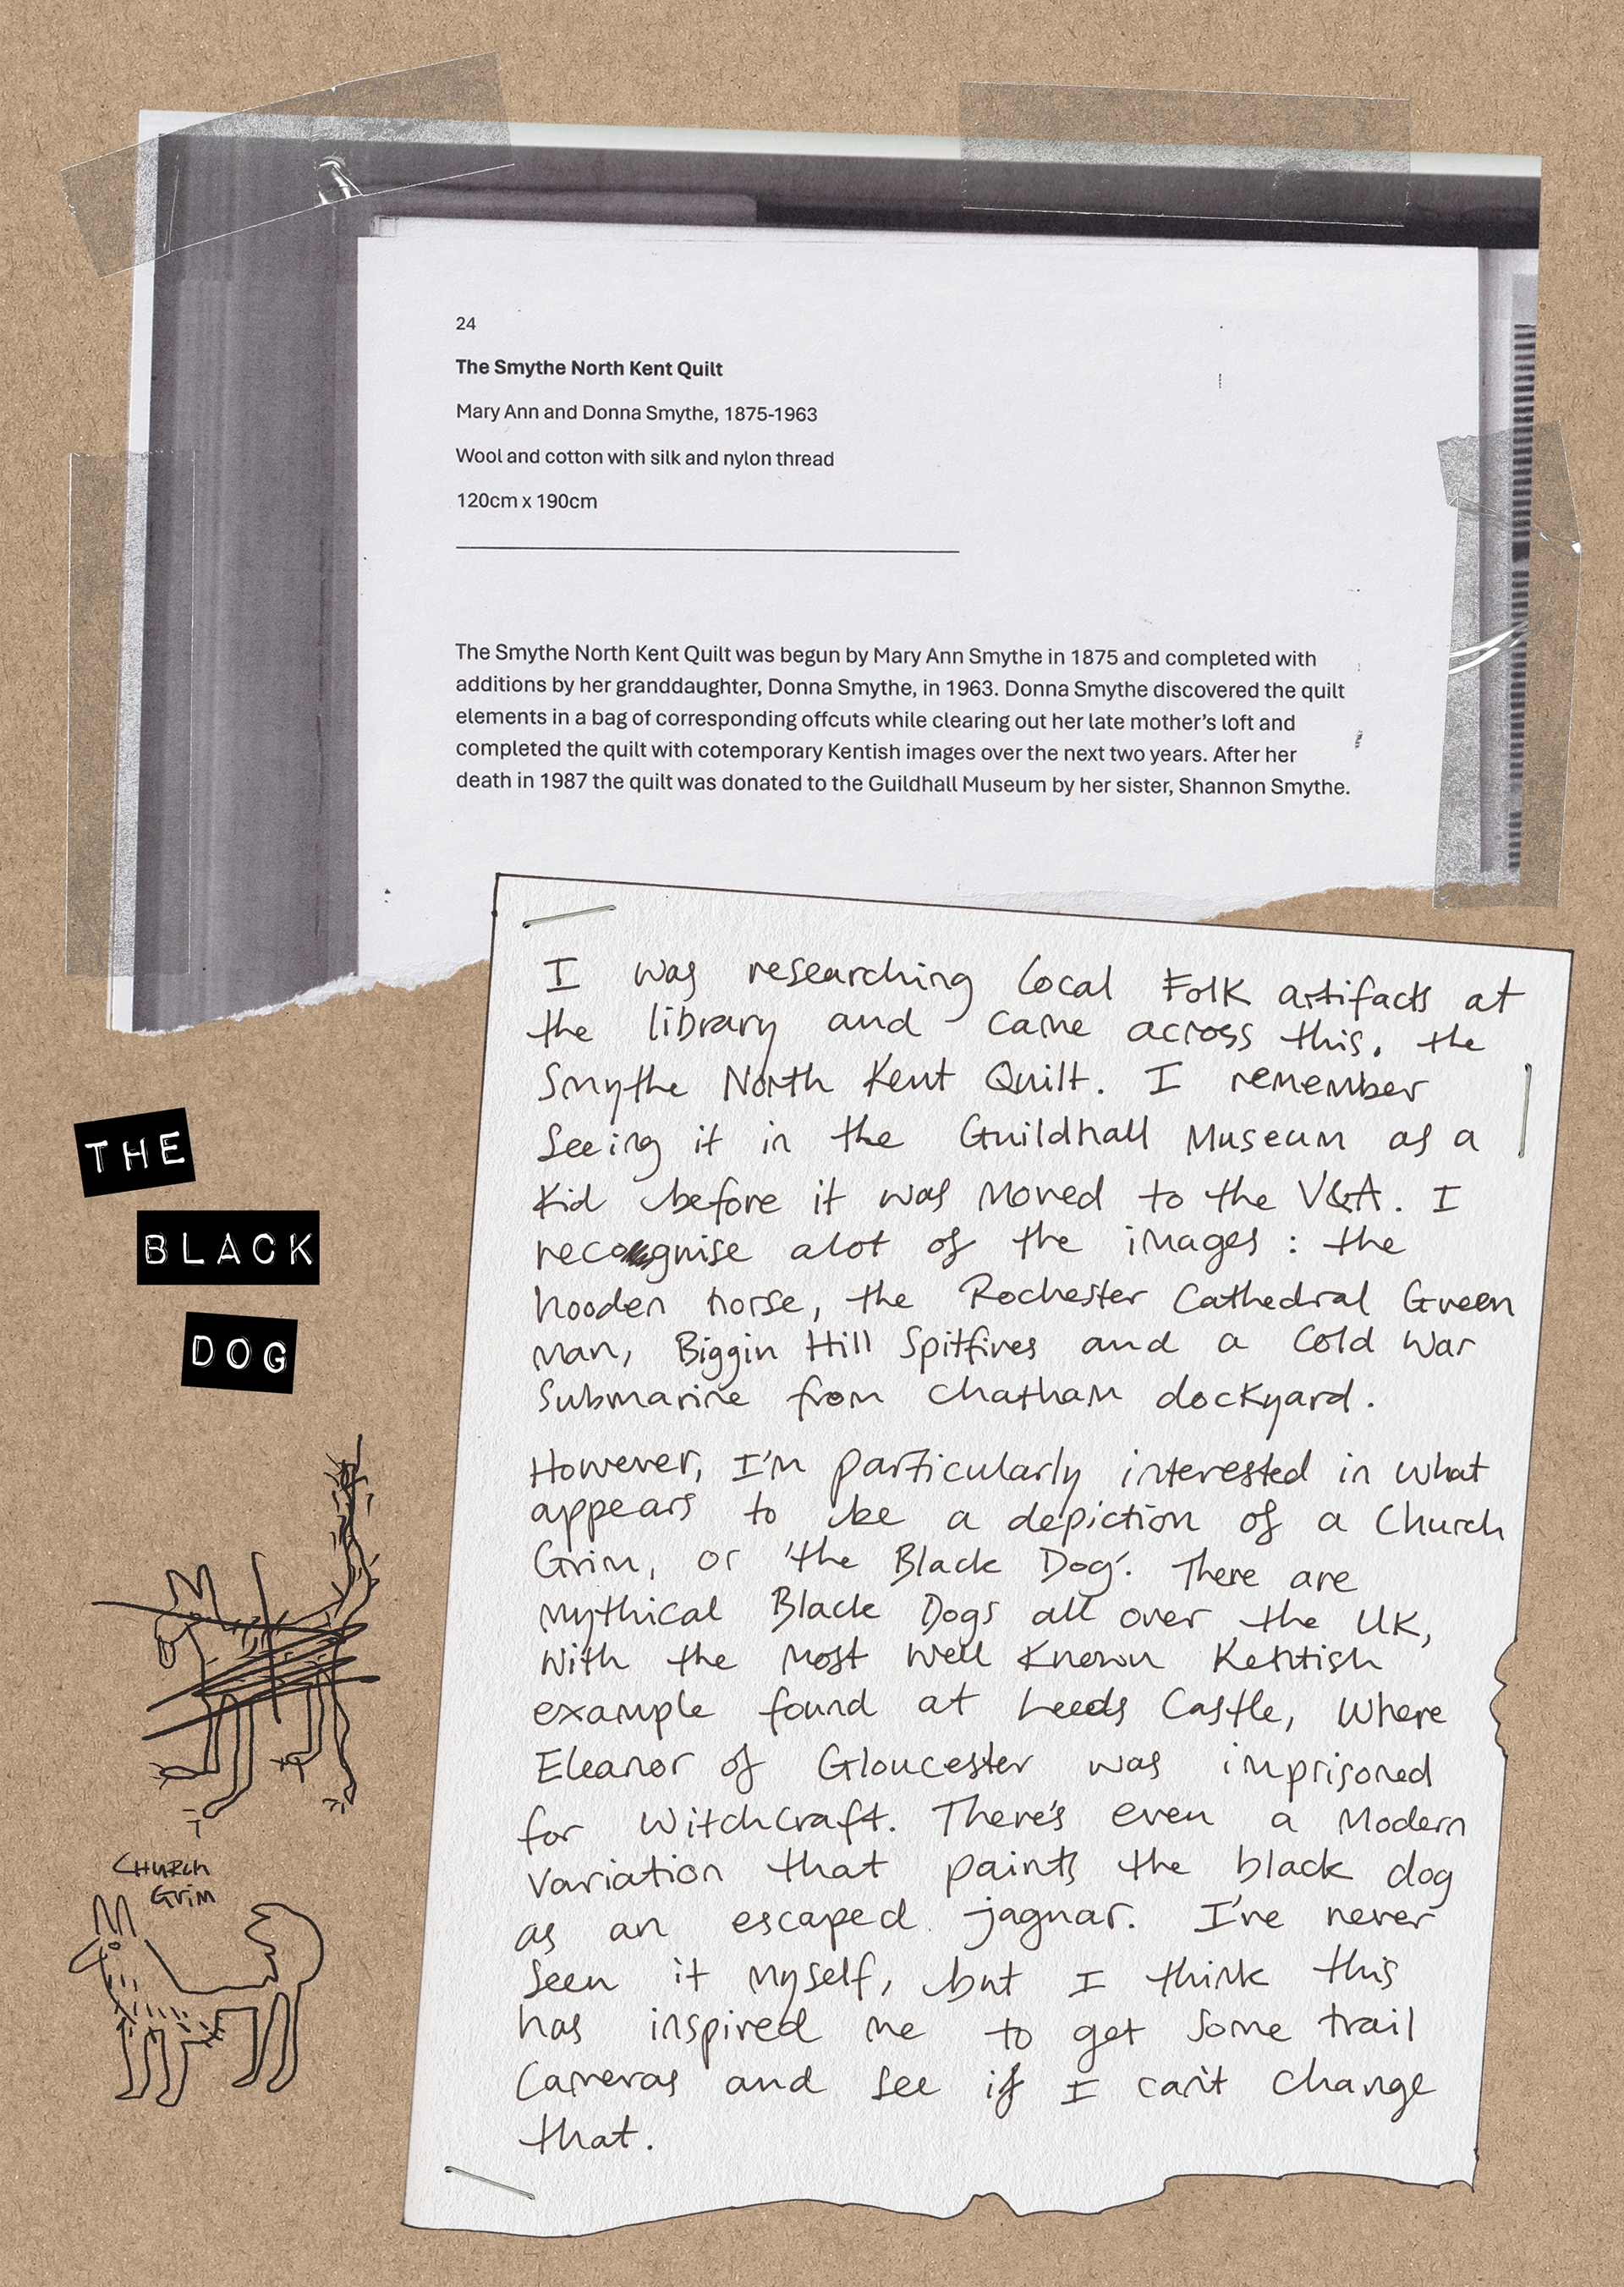 24
The Smythe North Kent Quilt
Mary Ann and Donna Smythe, 1875-1963
Wool and cotton with silk and nylon thread
120cm x 190cm
The Smythe North Kent Quilt was begun by Mary Ann Smythe in 1875 and completed with
additions by her granddaughter, Donna Smythe, in 1963. Donna Smythe discovered the quilt
elements in a bag of corresponding offcuts while clearing out her late mother's loft and
completed the quilt with cotemporary Kentish images over the next two years. After her
death in 1987 the quilt was donated to the Guildhall Museum by her sister, Shannon Smythe.
I was researching local Folk artifacts at
the library and came across this, the
Smythe North Kent Quilt. I remember
seeing it in the Guildhall Museum as a
kid before it was moved to the V&A. I
recognise alot of the images: the
hooden horse, the Rochester Cathedral Green
man, Biggin Hill Spitfires and a Cold War
Submarine from Chatham dockyard.
However, I'm particularly interested in what
appears to be a depiction of a Church
Grim, or 'the Black Dog'. There are
mythical Black Dogs all over the UK,
with the most well known Kentish
example found at Leeds Castle, where
Eleanor of Gloucester was imprisoned
for witchcraft. There's even a modern
variation that paints the black dog
as an escaped jaguar. I've never
seen it myself, but I think this
has inspired me to get some trail
cameras and see if I can't change
that.
THE
BLACK
DOG
CHURCH
Grim